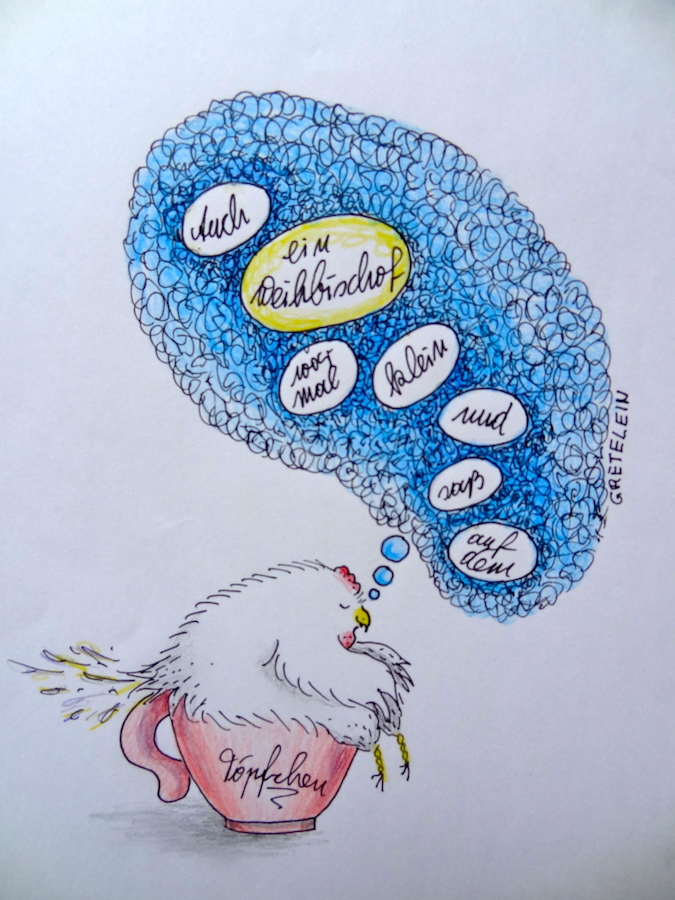 Auch
ein
Weihbischof
war
mal
klein
und
saß
auf
dem
Töpfchen
GRETELEIN